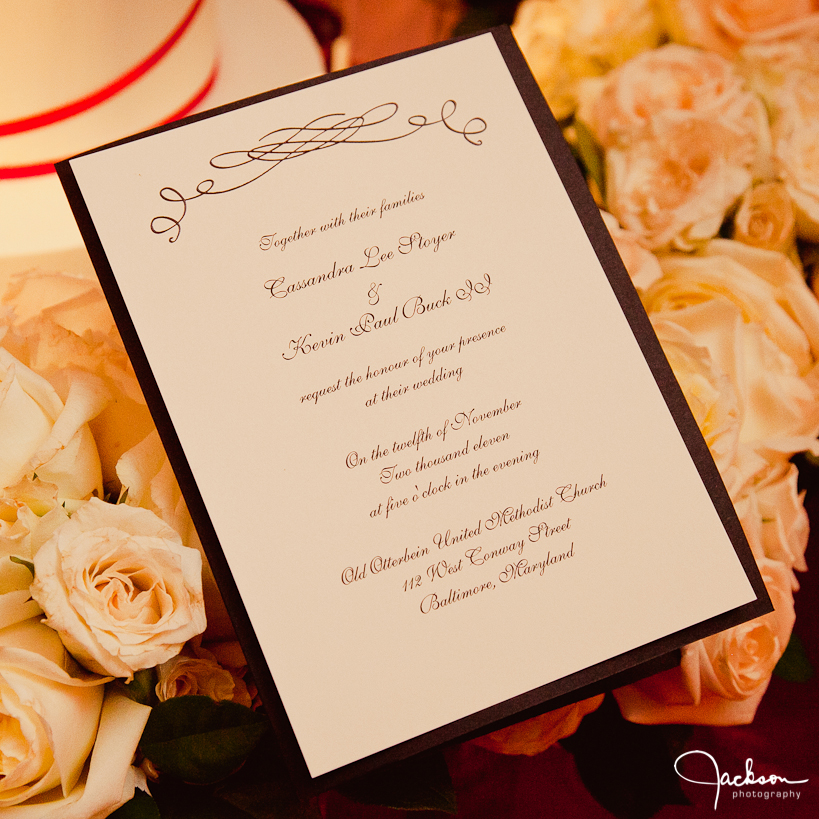 Together with their families
Cassandra Lee Stoyer
&
Kevin Paul Buck II
request the honour of your presence
at their wedding
On the twelfth of November
Two thousand eleven
at five o'clock in the evening
Old Otterbein United Methodist Church
112 West Conway Street
Baltimore, Maryland
Jackson
photography